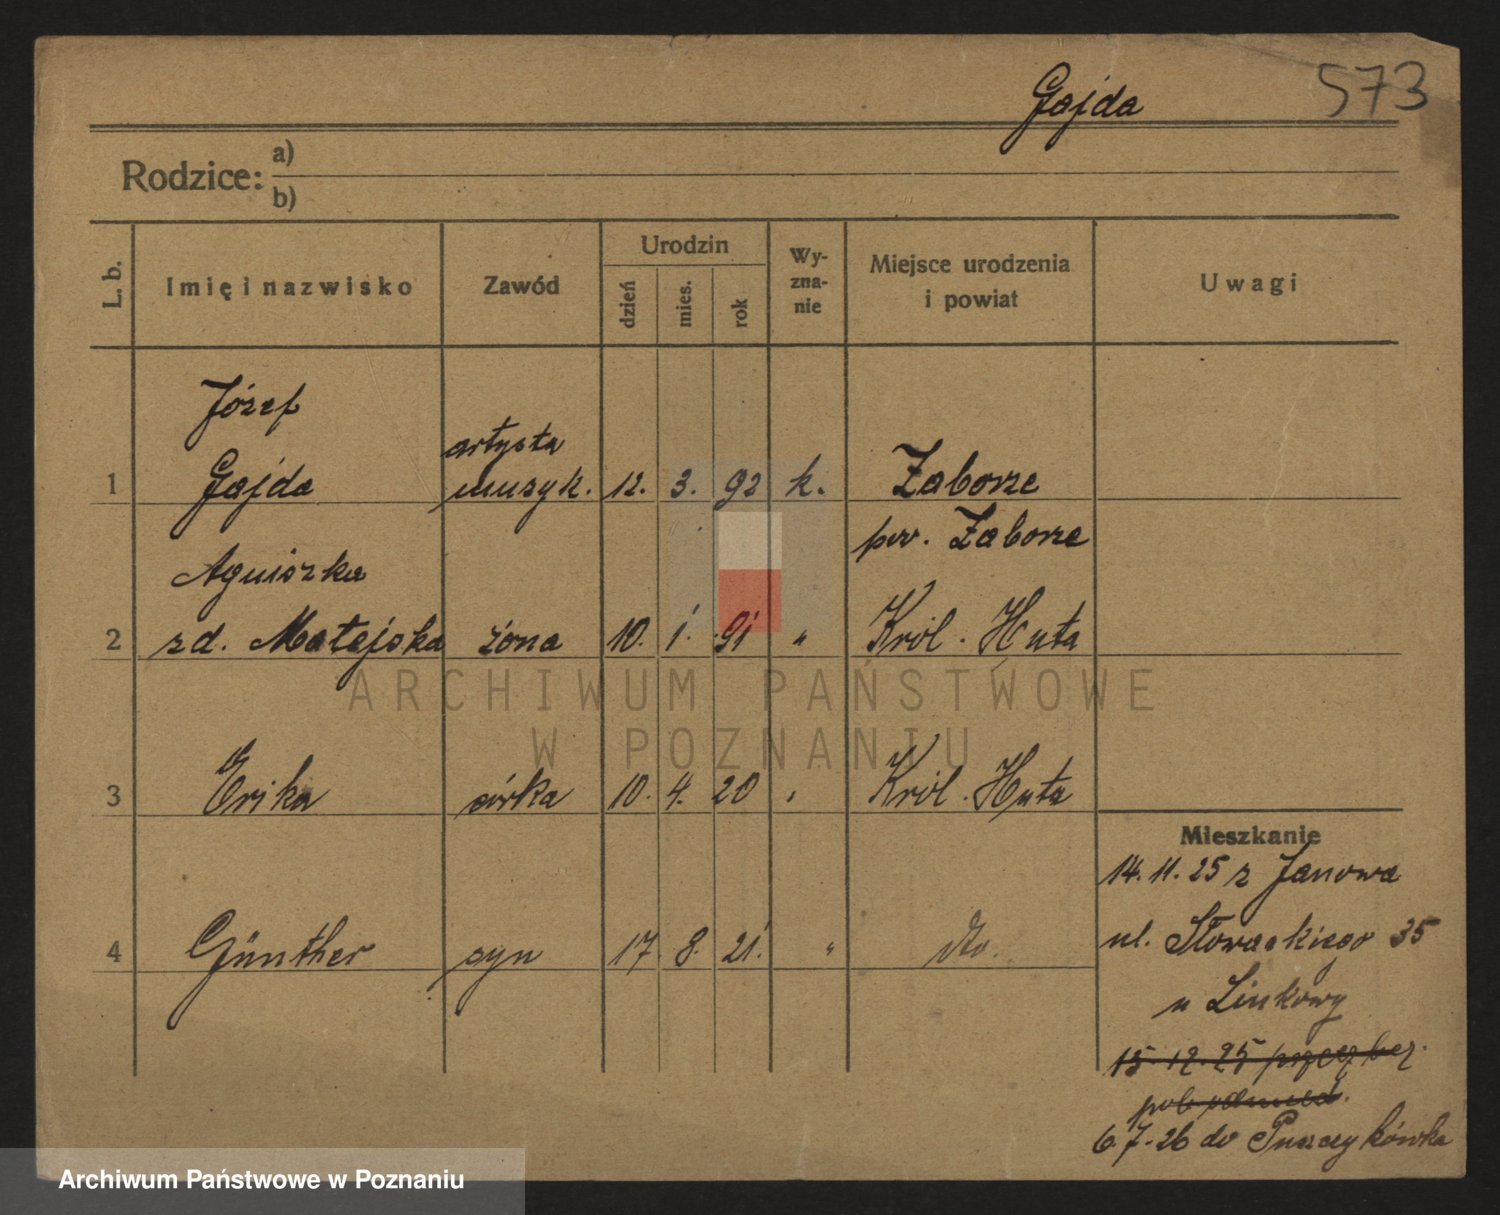 573
Gajda
Rodzice: a)
b)
L. b.
Imię i nazwisko
Zawód
Urodzin
dzień
mies.
rok
Wy-
zna-
nie
Miejsce urodzenia
i powiat
Uwagi
Józef
artysta
1 Gajda muzyk. 12. 3. 92 k. Zaborze
pow. Zaborze
Agniszka
2 zd. Matejska żona 10. 1. 91 " Król. Huta
ARCHIWUM PAŃSTWOWE
W POZNANIU
3 Erika córka 10. 4. 20 " Król. Huta
Mieszkanie
14.11.25 z Janowa
4 Günther syn 17. 8. 21. " dto.
ul. Słowackiego 35
u Linkowy
15.12.25
6.7.26 do Puszczykówka
Archiwum Państwowe w Poznaniu